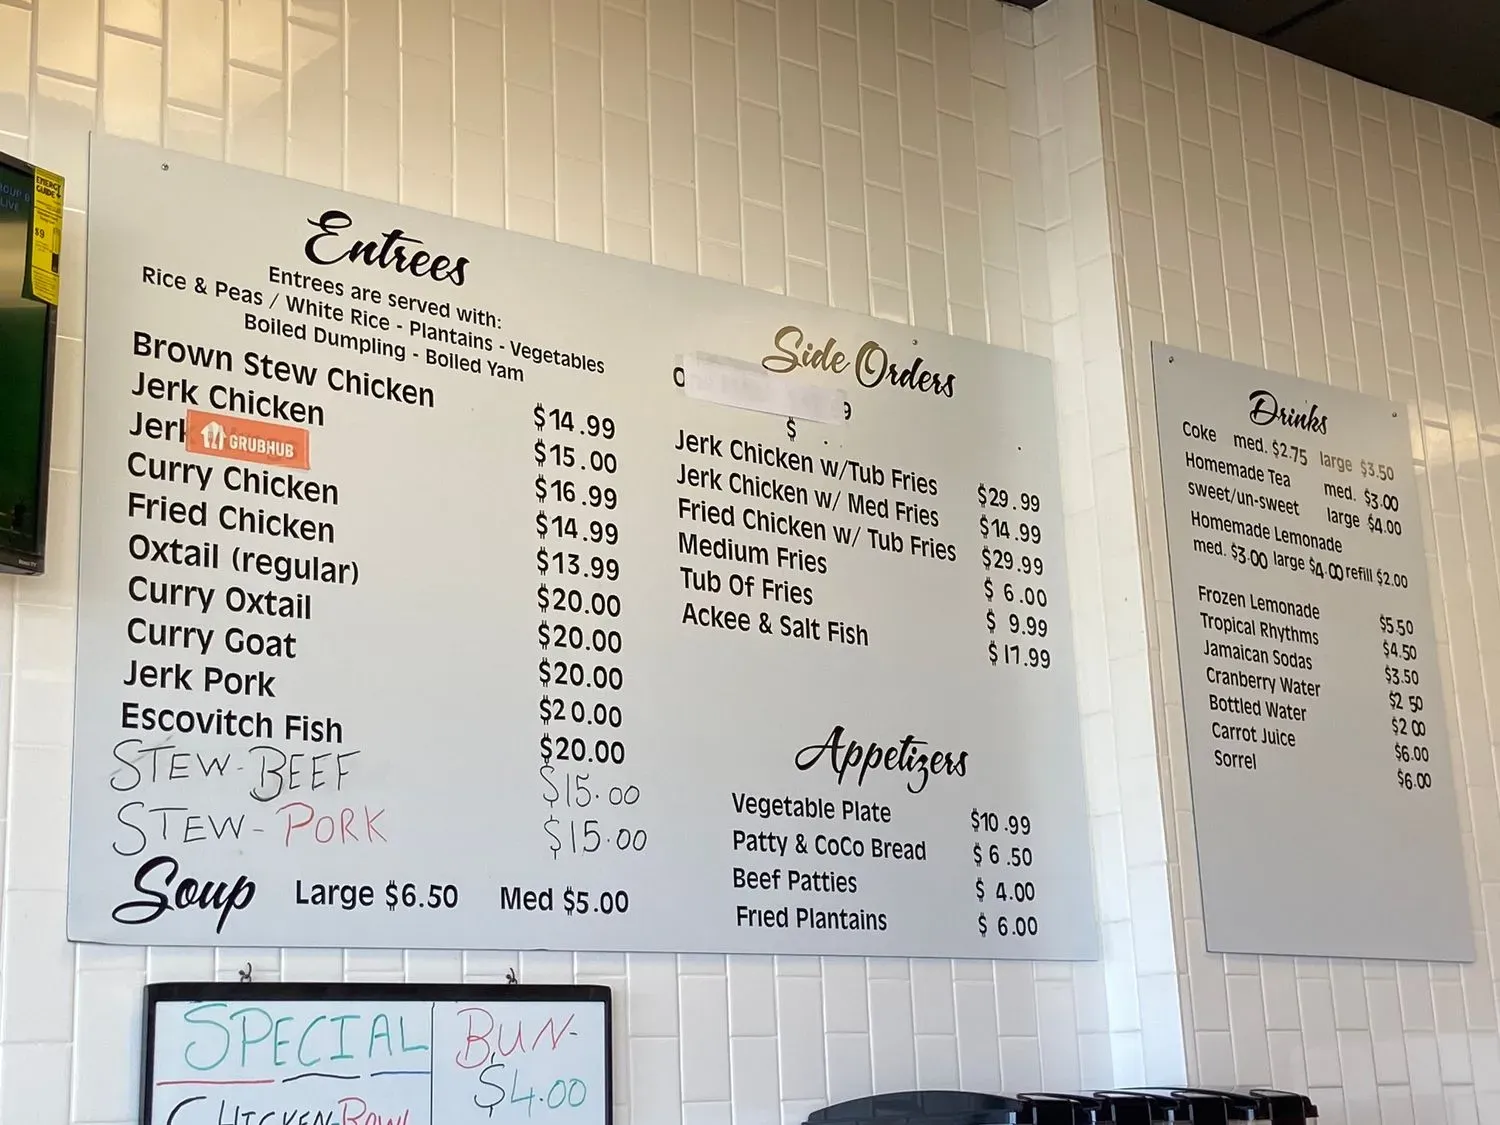 Entrees
Entrees are served with:
Rice & Peas / White Rice - Plantains - Vegetables
Boiled Dumpling - Boiled Yam
Brown Stew Chicken $14.99
Jerk Chicken $15.00
Jerk GRUBHUB $16.99
Curry Chicken $14.99
Fried Chicken $13.99
Oxtail (regular) $20.00
Curry Oxtail $20.00
Curry Goat $20.00
Jerk Pork $20.00
Escovitch Fish $20.00
STEW-BEEF $15.00
STEW-PORK $15.00
Soup Large $6.50 Med $5.00
Side Orders
$
Jerk Chicken w/Tub Fries $29.99
Jerk Chicken w/ Med Fries $14.99
Fried Chicken w/ Tub Fries $29.99
Medium Fries $ 6.00
Tub Of Fries $ 9.99
Ackee & Salt Fish $17.99
Appetizers
Vegetable Plate $10.99
Patty & CoCo Bread $ 6.50
Beef Patties $ 4.00
Fried Plantains $ 6.00
Drinks
Coke med. $2.75 large $3.50
Homemade Tea med. $3.00
sweet/un-sweet large $4.00
Homemade Lemonade
med. $3.00 large $4.00 refill $2.00
Frozen Lemonade $5.50
Tropical Rhythms $4.50
Jamaican Sodas $3.50
Cranberry Water $2 50
Bottled Water $2 00
Carrot Juice $6.00
Sorrel $6.00
SPECIAL
CHICKEN-BOWL
BUN-
$4.00
ENERGY
GUIDE
$9
LIVE